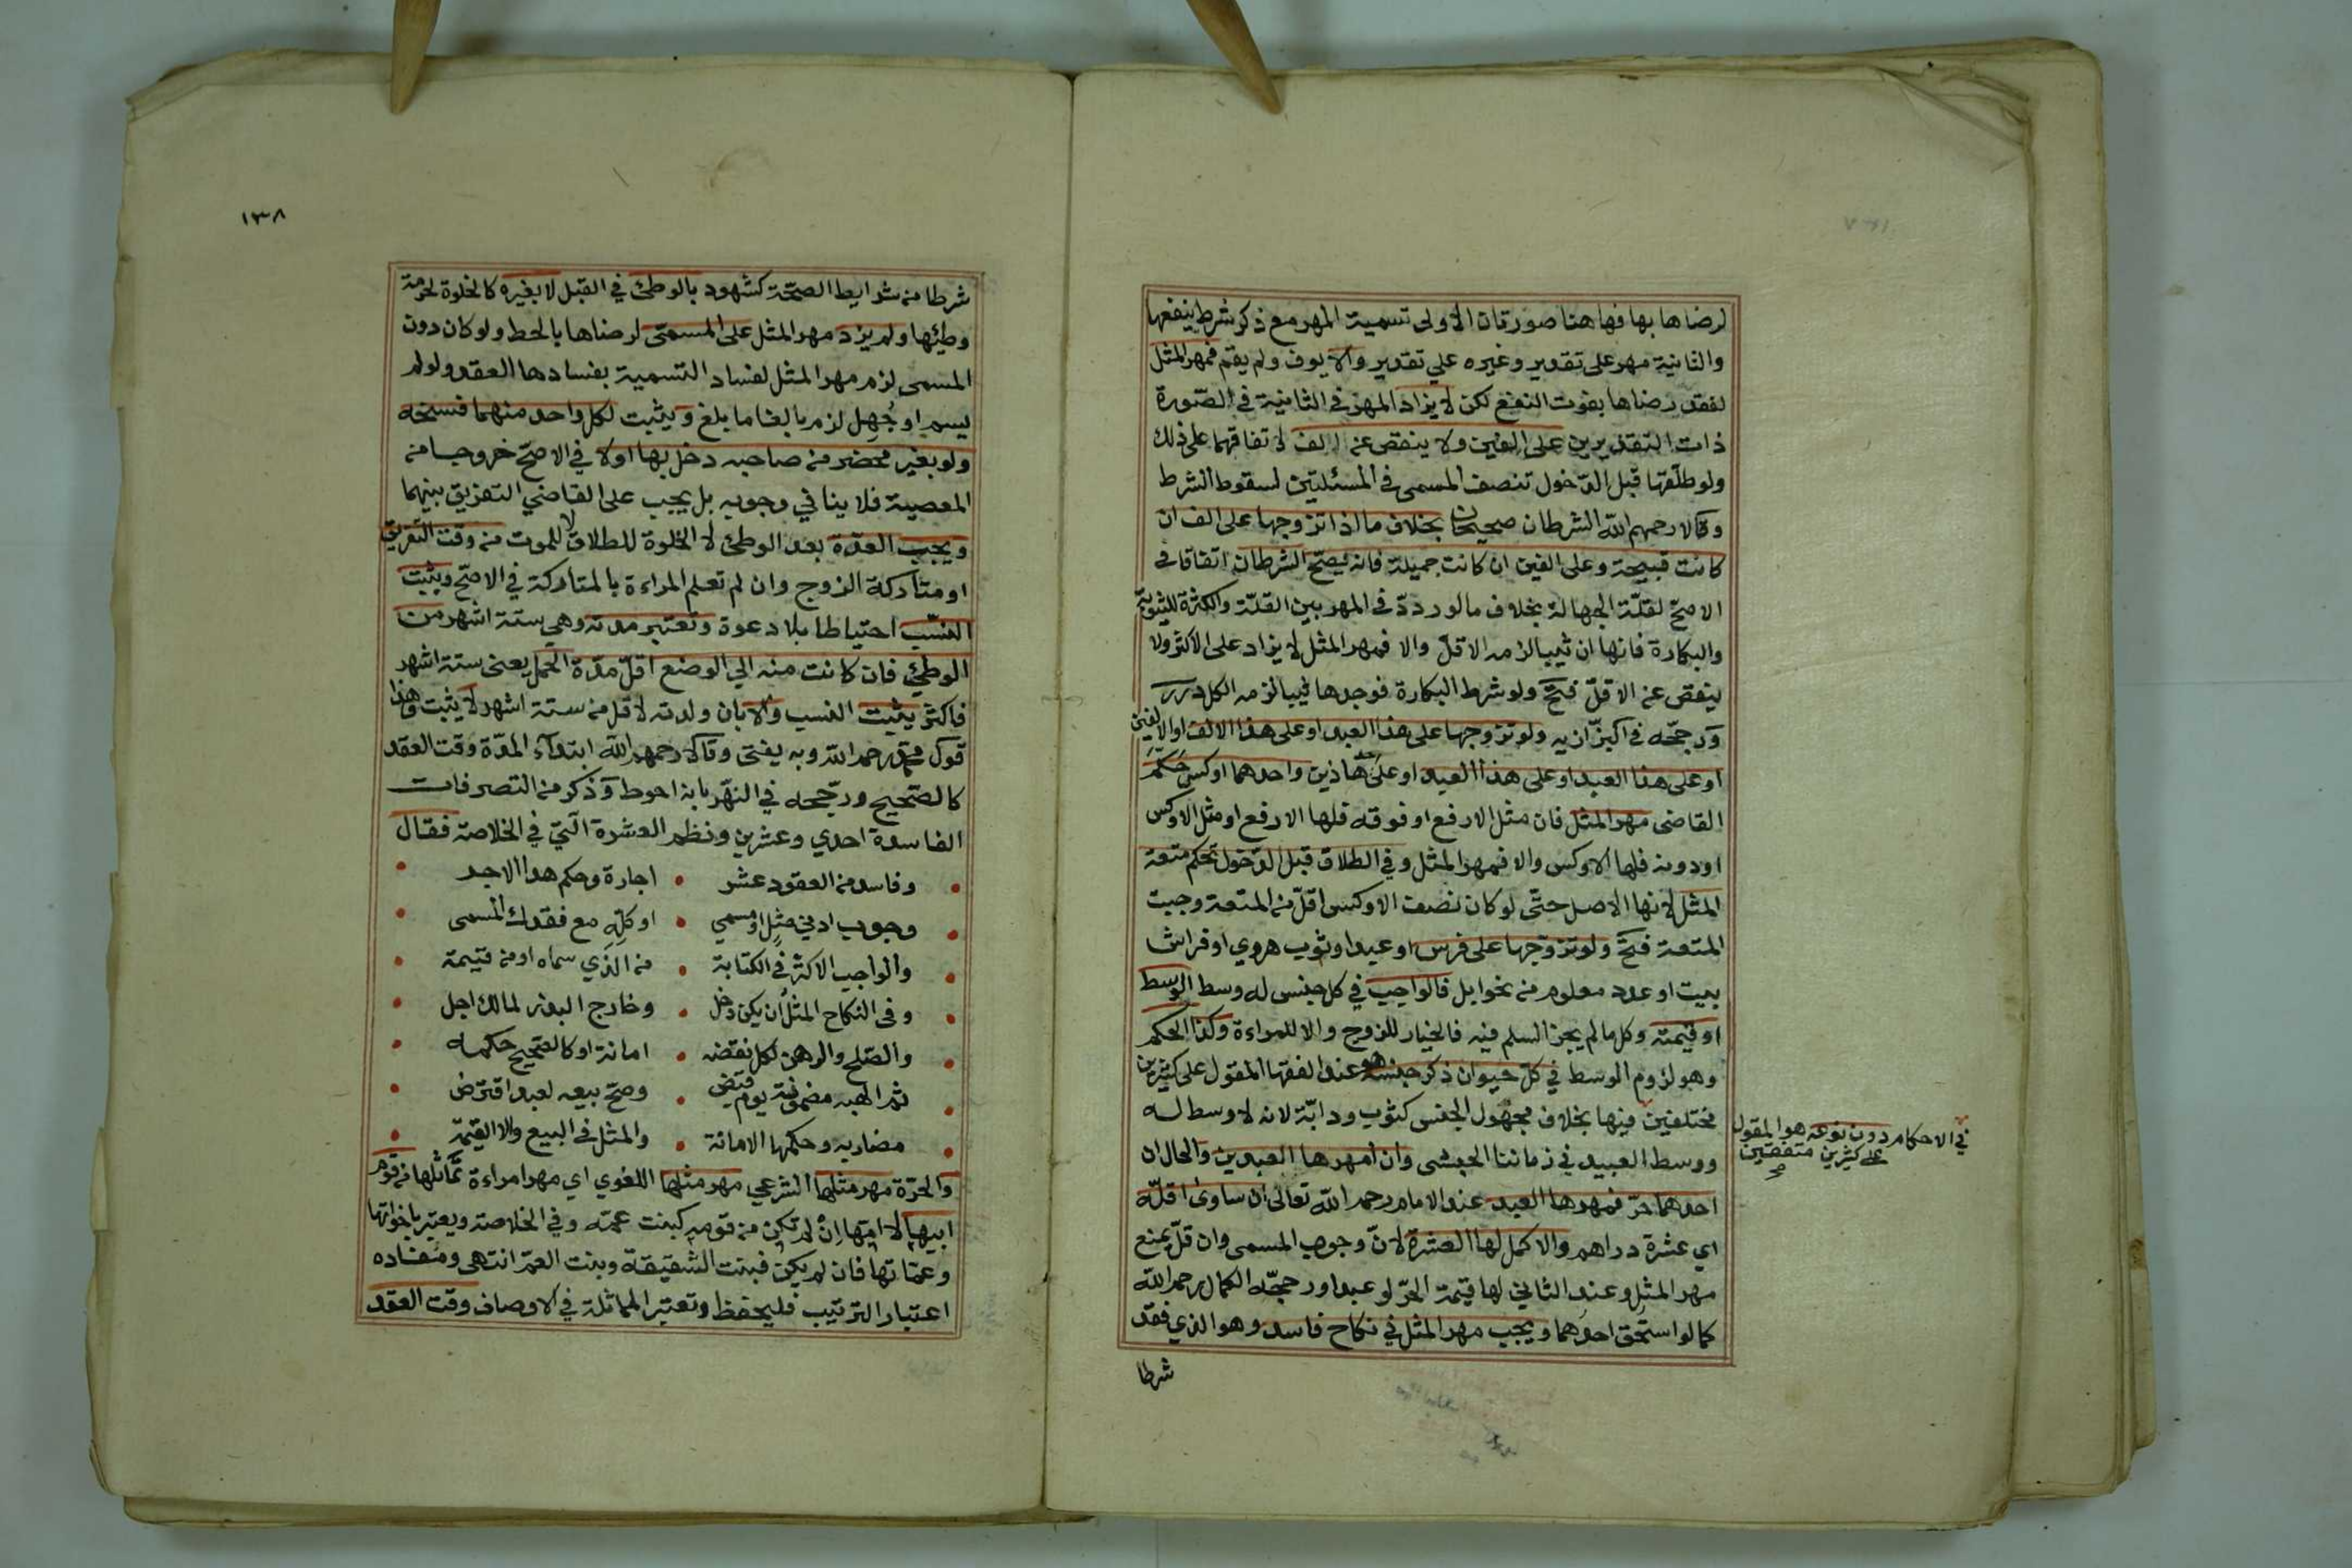 لرضاها بها فهاهنا صورتان الاولى تسمية المهر مع ذكر شرط ينفعها
والثانية مهر على تقدير وغيره علي تقدير والا يوف ولم يقم فمهر المثل
لفقد رضاها بفوت النفع لكن لا يزاد المهر في الثانية في الصورة
ذات التقديرين على الفين ولا ينقص عن الف لاتفاقهما على ذلك
ولو طلقها قبل الدخول تنصف المسمى في المسئلتين لسقوط الشرط
وقالا رحمهم الله الشرطان صحيحان بخلاف ما اذا تزوجها على الف ان
كانت قبيحة وعلى الفين ان كانت جميلة فانه يصح الشرطان اتفاقا في
الاصح لقلة الجهالة بخلاف ما لو ردد في المهر بين القلة والكثرة للثيوبة
والبكارة فانها ان ثيبا لزمه الاقل والا فمهر المثل لا يزاد على الاكثر ولا
ينقص عن الاقل فتح ولو شرط البكارة فوجدها ثيبا لزمه الكل درر
ورجحه في البزازيه ولو تزوجها على هذا العبد او على هذا الالف او الالفين
او على هذا العبد او على هذا العبد او على احد هاذين واحدهما اوكس حكم
القاضى مهر المثل فان مثل الارفع او فوقه فلها الارفع او مثل الاوكس
او دونه فلها الاوكس والا فمهر المثل وفي الطلاق قبل الدخول تحكم متعة
المثل لانها الاصل حتى لو كان نصف الاوكس اقل من المتعة وجبت
المتعة فتح ولو تزوجها على فرس او عبد او ثوب هروي او فراش
بيت او عدد معلوم من نحو ابل فالواجب في كل جنس له وسط الوسط
او قيمته وكل ما لم يجز السلم فيه فالخيار للزوج والا للمراءة وكذا الحكم
وهو لزوم الوسط في كل حيوان ذكر جنسه هو عند الفقها المقول على كثيرين
مختلفين فيها بخلاف مجهول الجنس كثوب ودابة لانه لا وسط له
في الاحكام دون نوعه هو المقول
على كثيرين متفقين
صح
ووسط العبيد في زماننا الحبشى وان امهرها العبدين والحال ان
احدهما حر فمهرها العبد عند الامام رحمه الله تعالى ان ساوى اقله
اي عشرة دراهم والا كمل لها العشرة لان وجوب المسمى وان قل يمنع
مهر المثل وعند الثاني لها قيمة الحر لو عبدا ورجحه الكمال رحمه الله
كما لو استحق احدهما ويجب مهر المثل في نكاح فاسد وهو الذي فقد
شرطا
١٣٨
شرطا من شرايط الصحة كشهود بالوطئ في القبل لا بغيره كالخلوة لحرمة
وطئها ولم يزد مهر المثل على المسمى لرضاها بالحط ولو كان دون
المسمى لزم مهر المثل لفساد التسمية بفسادها العقد ولو لم
يسم او جهل لزم بالغا ما بلغ ويثبت لكل واحد منهما فسخه
ولو بغير محضر من صاحبه دخل بها اولا في الاصح خروجا من
المعصية فلا ينافي وجوبه بل يجب على القاضي التفريق بينهما
ويجب العدة بعد الوطئ لا الخلوة للطلاق لا للموت من وقت التفريق
او متاركة الزوج وان لم تعلم المراءة بالمتاركة في الاصح ويثبت
النسب احتياطا بلا دعوة وتعتبر مدته وهي ستة اشهر من
الوطئ فان كانت منه الي الوضع اقل مدة الحمل يعنى ستة اشهر
فاكثر يثبت النسب والا بان ولدته لاقل من ستة اشهر لا يثبت وهذا
قول محمد رحمه الله وبه يفتى وقالا رحمهم الله ابتداء المدة وقت العقد
كالصحيح ورجحه في النهر بانه احوط وذكر من التصرفات
الفاسدة احدي وعشرين ونظم العشرة التي في الخلاصة فقال
وفاسد من العقود عشر • اجارة وحكم هذا الاجر
وجوب ادني مثل او مسمي • او كله مع فقدك المسمى
والواجب الاكثر في الكتابة • من الذي سماه او من قيمة
وفى النكاح المثل ان يكن دخل • وخارج البذر لمالك اجل
والصلح والرهن لكل نقضه • امانة او كالصحيح حكمه
ثم الهبه مضمونة يوم قبض • وصح بيعه لعبد اقترض
مضاربه وحكمها الامانة • والمثل في البيع والا القيمة
والحرة مهر مثلها الشرعي مهر مثلها اللغوي اي مهر امراءة تماثلها من قوم
ابيها لا امها ان لم تكن من قومه كبنت عمه وفي الخلاصة ويعتبر باخواتها
وعماتها فان لم يكن فبنت الشقيقة وبنت العم انتهى ومفاده
اعتبار الترتيب فليحفظ وتعتبر المماثلة في الاوصاف وقت العقد